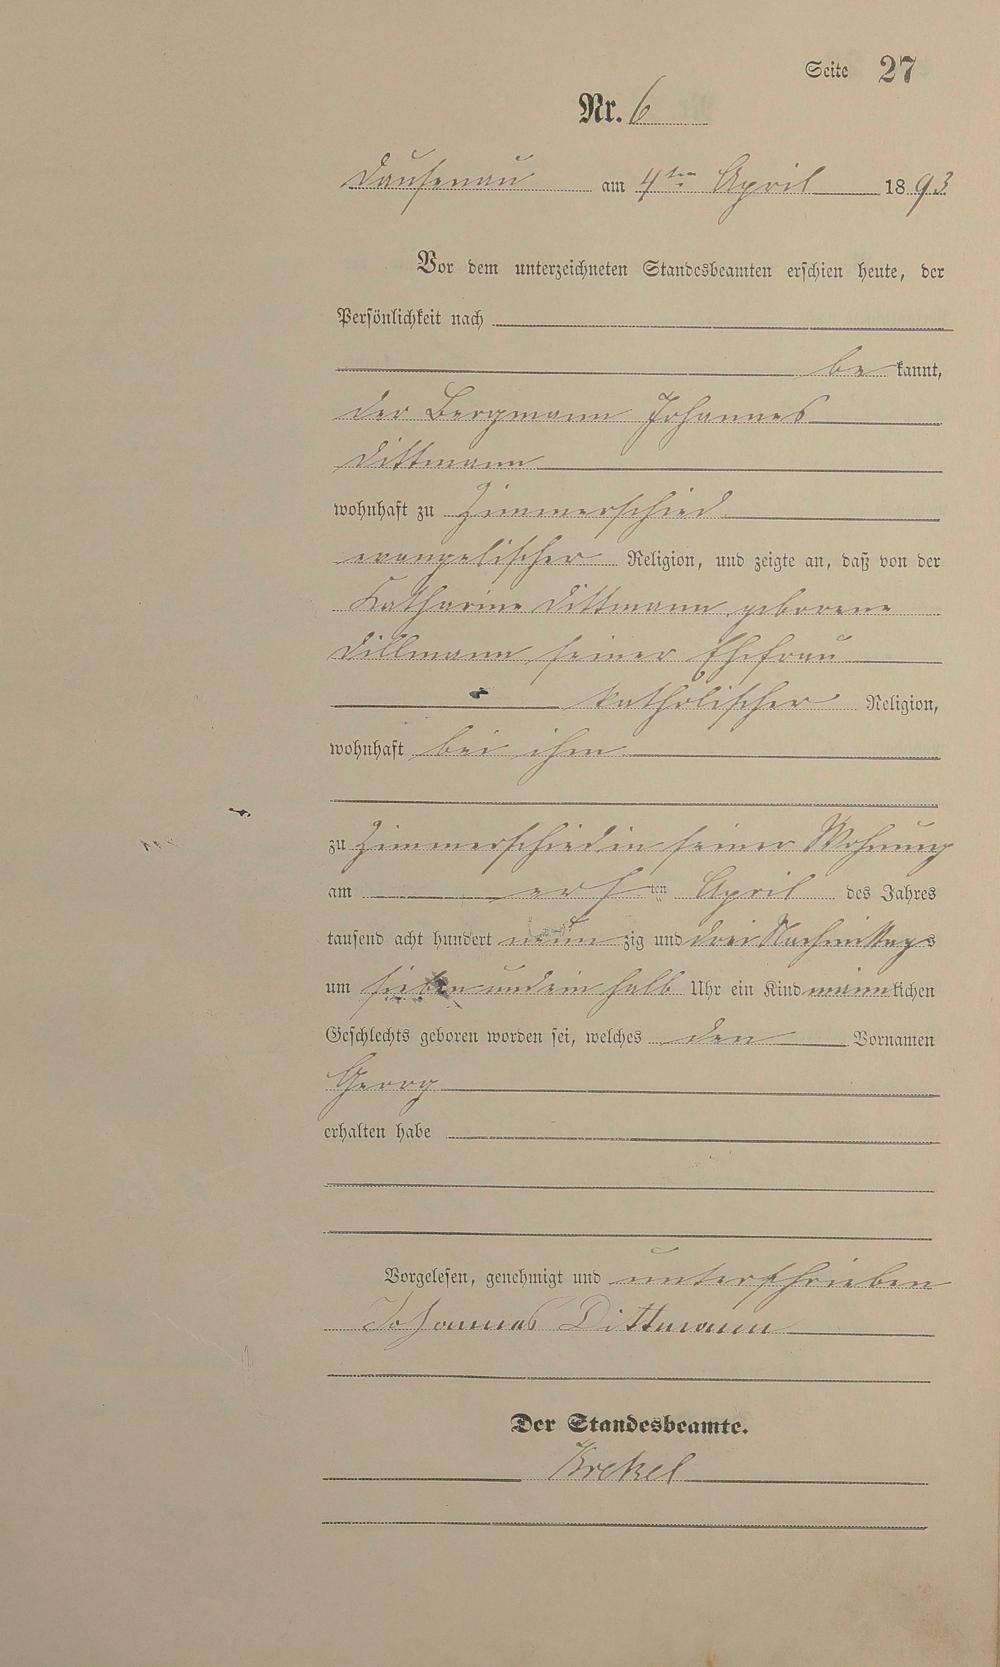 Seite 27
Nr. 6
Dausenau am 4ten April 1893
Vor dem unterzeichneten Standesbeamten erschien heute, der
Persönlichkeit nach
be kannt,
der Bergmann Johannes
Dittmann
wohnhaft zu Zimmerschied
evangelischer Religion, und zeigte an, daß von der
Katharine Dittmann geborene
Dillmann seiner Ehefrau
katholischer Religion,
wohnhaft bei ihm
zu Zimmerschied in seiner Wohnung
am ersten April des Jahres
tausend acht hundert neun zig und drei Nachmittags
um sieben und ein halb Uhr ein Kind männlichen
Geschlechts geboren worden sei, welches den Vornamen
Georg
erhalten habe
Vorgelesen, genehmigt und unterschrieben
Johannes Dittmann
Der Standesbeamte.
Krekel